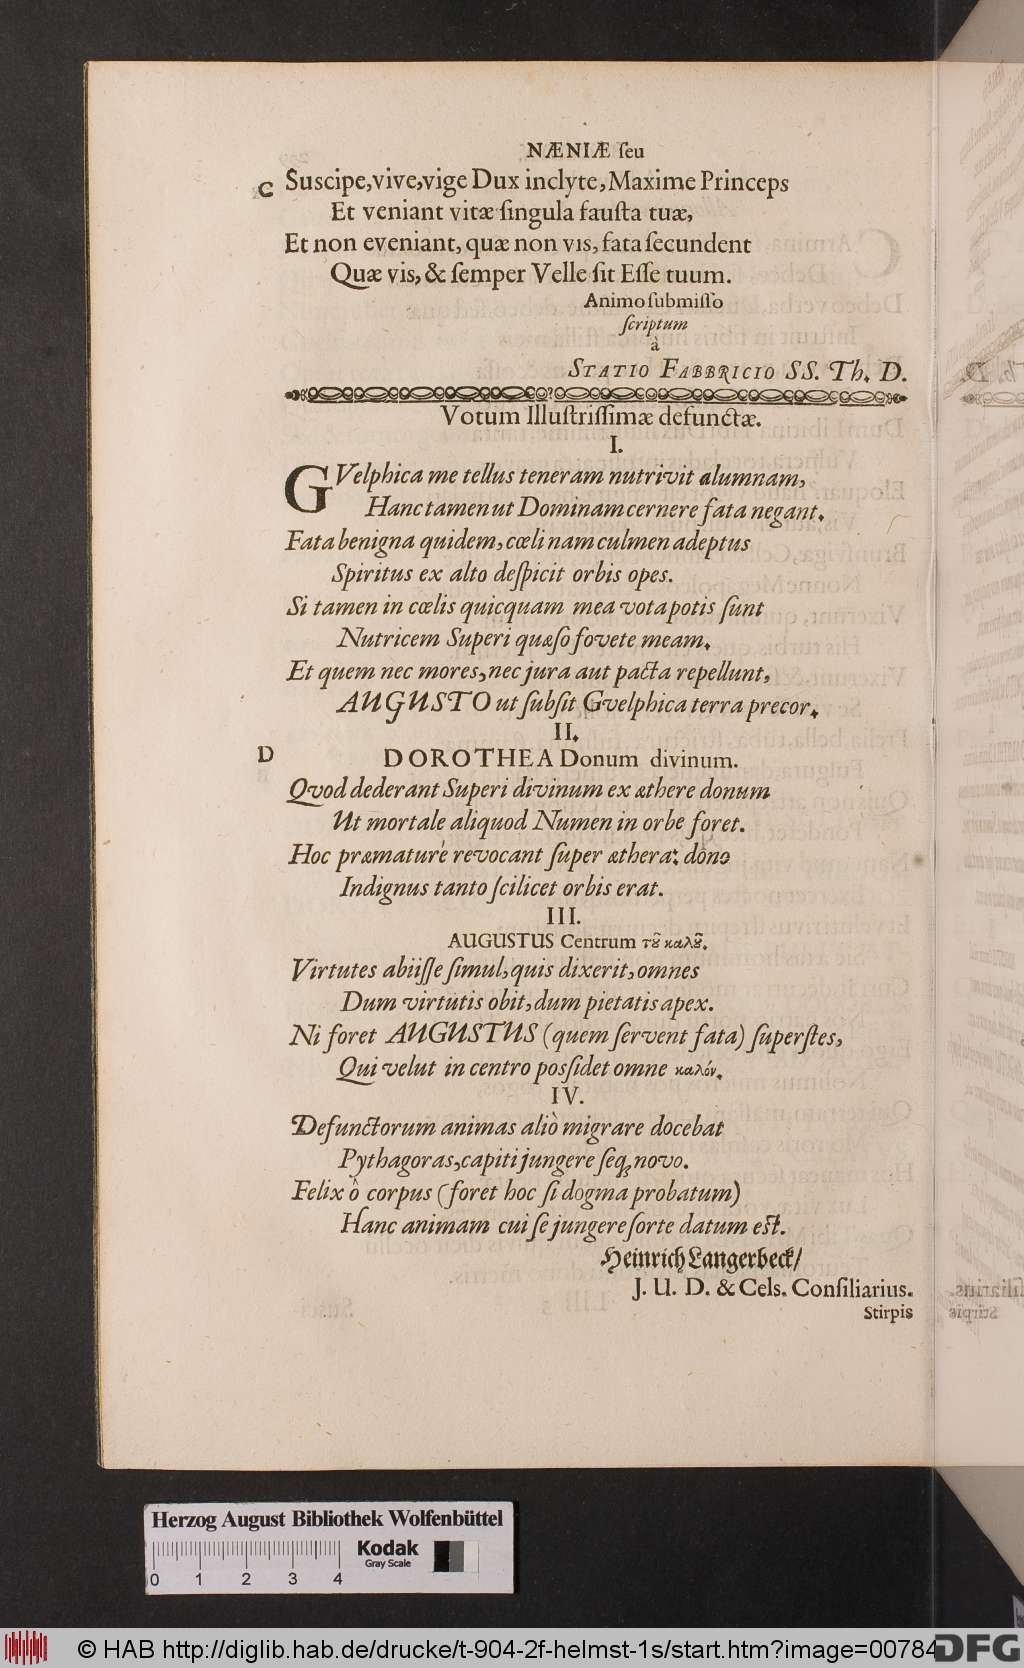 NÆNIÆ ſeu
C Suscipe, vive, vige Dux inclyte, Maxime Princeps
Et veniant vitæ ſingula fauſta tuæ,
Et non eveniant, quæ non vis, fata ſecundent
Quæ vis, & ſemper Velle ſit Eſſe tuum.
Animo ſubmiſſo
ſcriptum
à
STATIO FABBRICIO SS. Th. D.
Votum Illuſtriſſimæ defunctæ.
I.
GVelphica me tellus teneram nutrivit alumnam,
Hanc tamen ut Dominam cernere fata negant.
Fata benigna quidem, cœli nam culmen adeptus
Spiritus ex alto deſpicit orbis opes.
Si tamen in cœlis quicquam mea vota potis ſunt
Nutricem Superi quæſo fovete meam.
Et quem nec mores, nec jura aut pacta repellunt,
AUGUSTO ut ſubſit Gvelphica terra precor.
II.
D DOROTHEA Donum divinum.
Qvod dederant Superi divinum ex æthere donum
Ut mortale aliquod Numen in orbe foret.
Hoc præmaturè revocant ſuper æthera: dono
Indignus tanto ſcilicet orbis erat.
III.
AUGUSTUS Centrum τȣ̃ καλȣ̃.
Virtutes abiiſſe ſimul, quis dixerit, omnes
Dum virtutis obit, dum pietatis apex.
Ni foret AUGUSTUS (quem ſervent fata) ſuperſtes,
Qui velut in centro posſidet omne καλόν.
IV.
Defunctorum animas aliò migrare docebat
Pythagoras, capiti jungere ſeq; novo.
Felix ô corpus (foret hoc ſi dogma probatum)
Hanc animam cui ſe jungere ſorte datum eſt.
Heinrich Langerbeck/
J. U. D. & Cels. Conſiliarius.
Stirpis
Herzog August Bibliothek Wolfenbüttel
Kodak
Gray Scale
0 1 2 3 4
© HAB http://diglib.hab.de/drucke/t-904-2f-helmst-1s/start.htm?image=00784
DFG